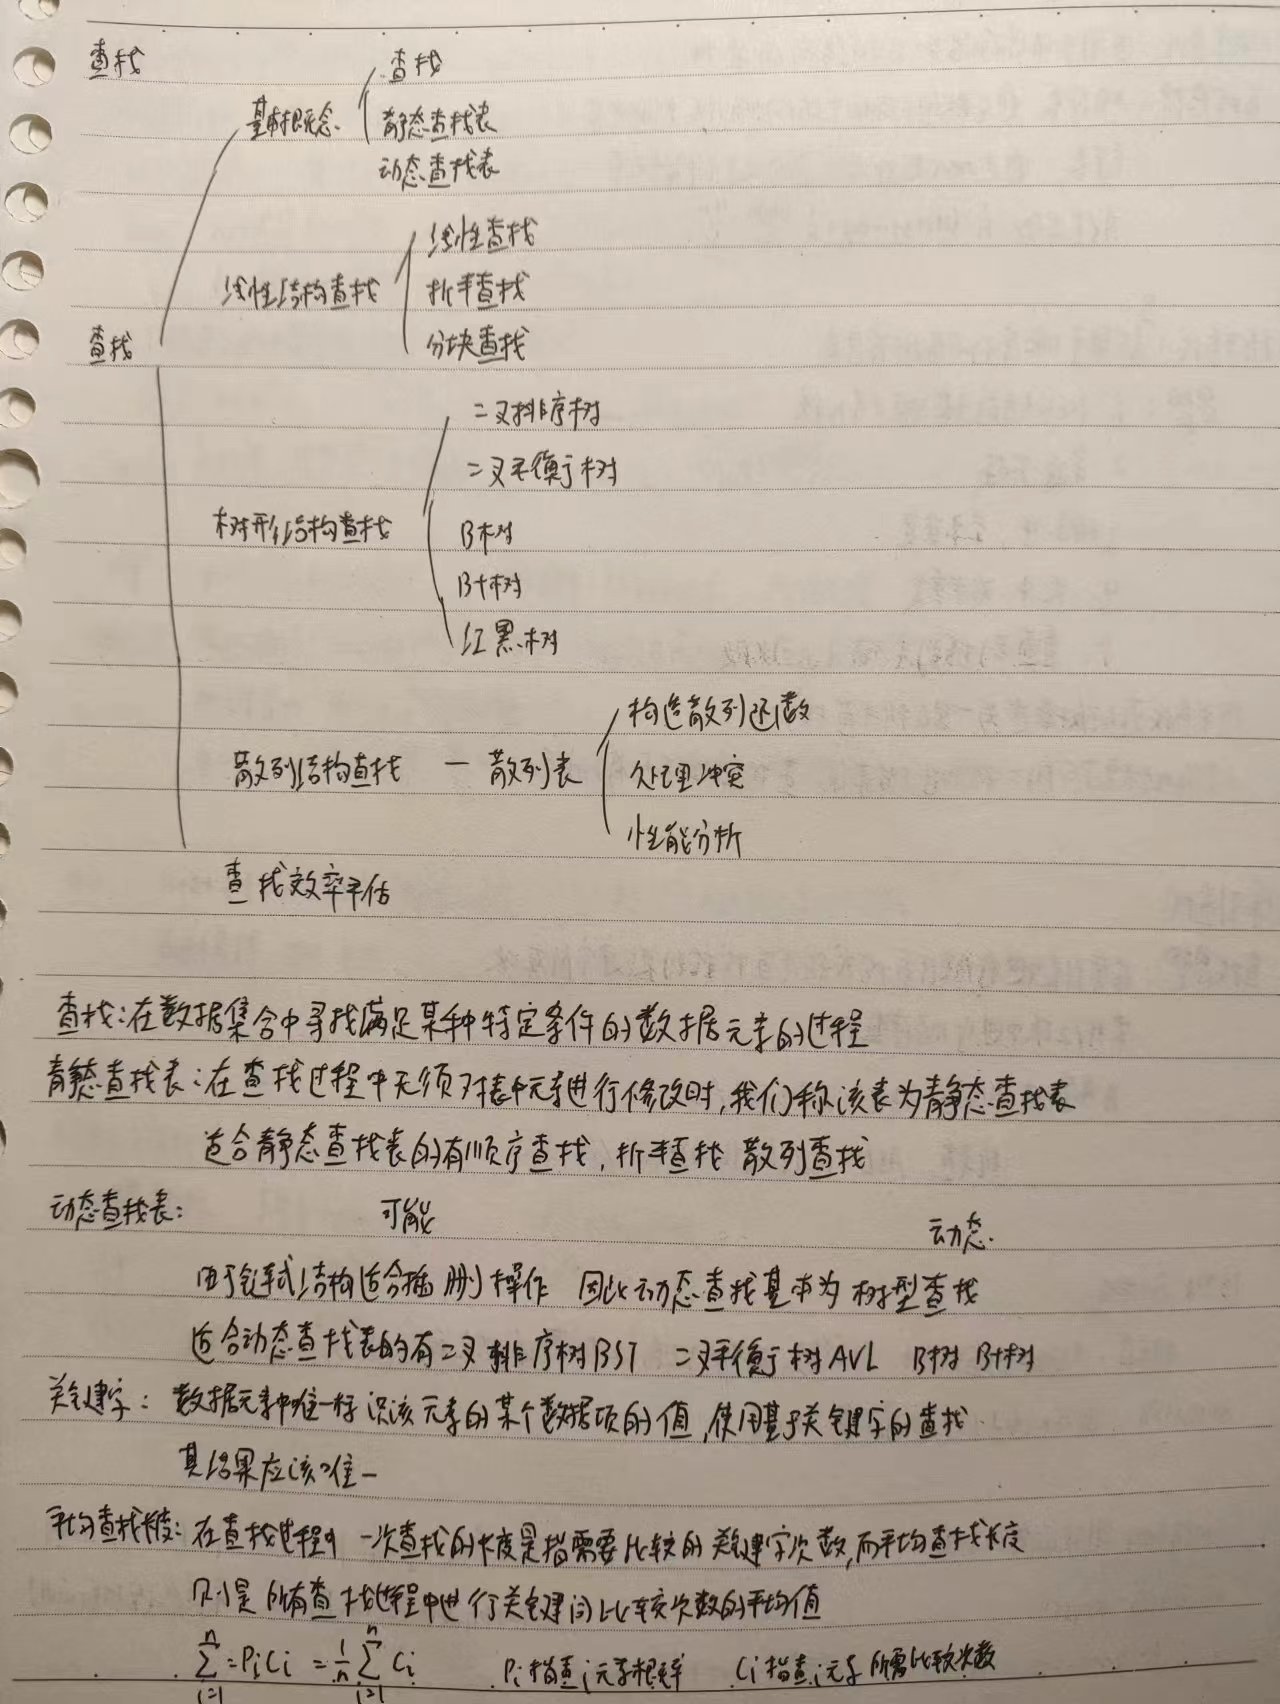 查找
查找
基本概念
静态查找表
动态查找表
线性查找
线性结构查找
折半查找
查找
分块查找
二叉排序树
二叉平衡树
树形结构查找
B树
B+树
红黑树
构造散列函数
散列结构查找 — 散列表
处理冲突
性能分析
查找效率评估
查找:在数据集合中寻找满足某种特定条件的数据元素的过程
静态查找表:在查找过程中无须对表中元素进行修改时,我们称该表为静态查找表
适合静态查找表的有顺序查找,折半查找 散列查找
动态查找表: 可能 动态
由于链式结构适合插删操作 因此动态查找基本为树型查找
适合动态查找表的有二叉排序树BST 二叉平衡树AVL B树 B+树
关键字: 数据元素中唯一标识该元素的某个数据项的值,使用基于关键字的查找
其结果应该唯一
平均查找长度: 在查找过程中 一次查找的长度是指需要比较的关键字次数,而平均查找长度
则是所有查找过程中进行关键词比较次数的平均值
∑ⁿᵢ₌₁ = PiCi = 1/n ∑ⁿᵢ₌₁ Ci Pi指查i元素概率 Ci指查i元素所需比较次数